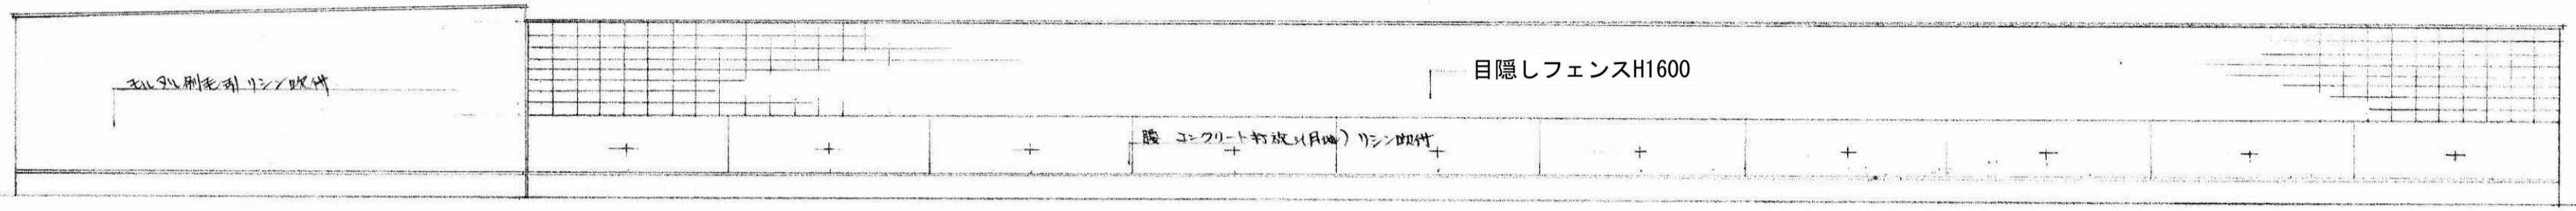 モルタル刷毛引リシン吹付
目隠しフェンスH1600
腰 コンクリート打放し(目地)リシン吹付